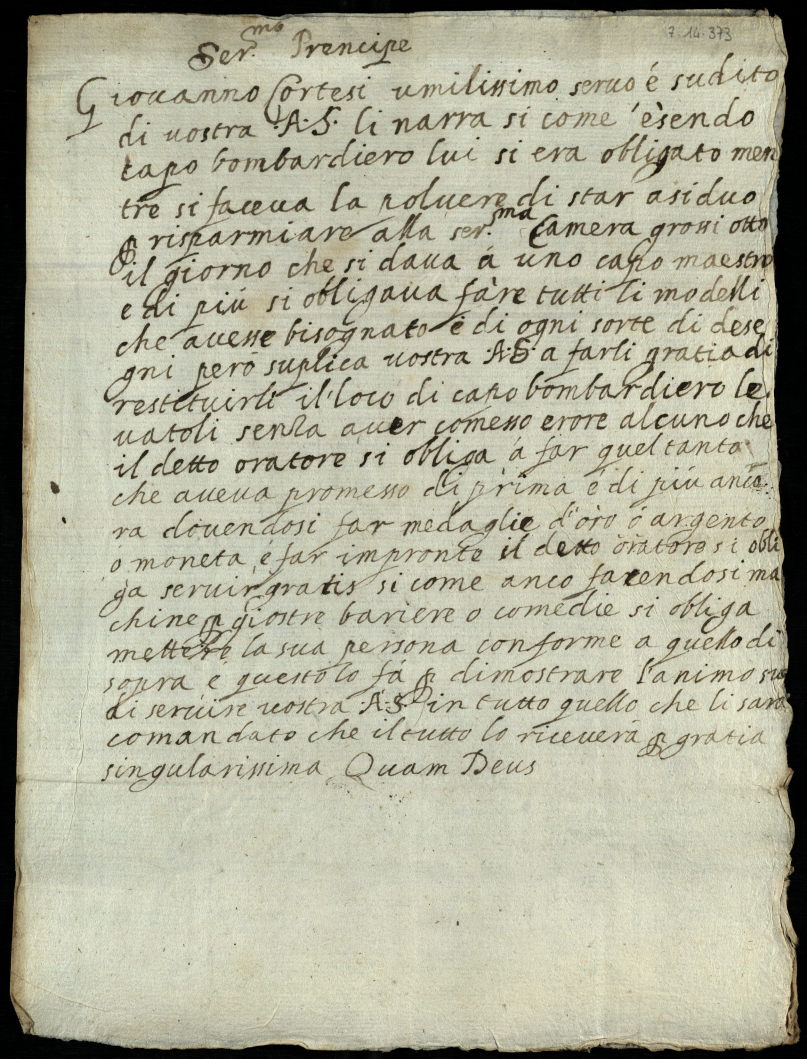 7.14.373
Ser.mo Prencipe
Giovanno Cortesi umilissimo servo é sudito
di vostra A.S. li narra si come 'èsendo
capo bombardiero lui si era obligato men
tre si faceva la polvere di star asiduo
ꝑ risparmiare alla ser.ma Camera grossi otto
il giorno che si dava á uno capo maestro
e di piú si obligava fàre tutti li modelli
che avesse bisognato é di ogni sorte di dese
gni peró suplica vostra A.S. a farli gratia di
restituirli il loco di capo bombardiero le
vatoli senza aver comesso erore alcuno che
il detto oratore si obliga á far quel tanto
che aveva promesso di prima é di piú anco
ra dovendosi far medaglie d'òro ó argento
ó moneta é far impronte il detto oratore si obli
ga servir gratis si come anco facendosi ma
chine ꝑ giostre bariere o comedie si obliga
mettere la sua persona conforme a quello di
sopra é questo lo fá ꝑ dimostrare l'animo suo
di servire vostra A.S. in tutto quello che li sará
comandato che il tutto lo riceverá ꝑ gratia
singularissima Quam Deus